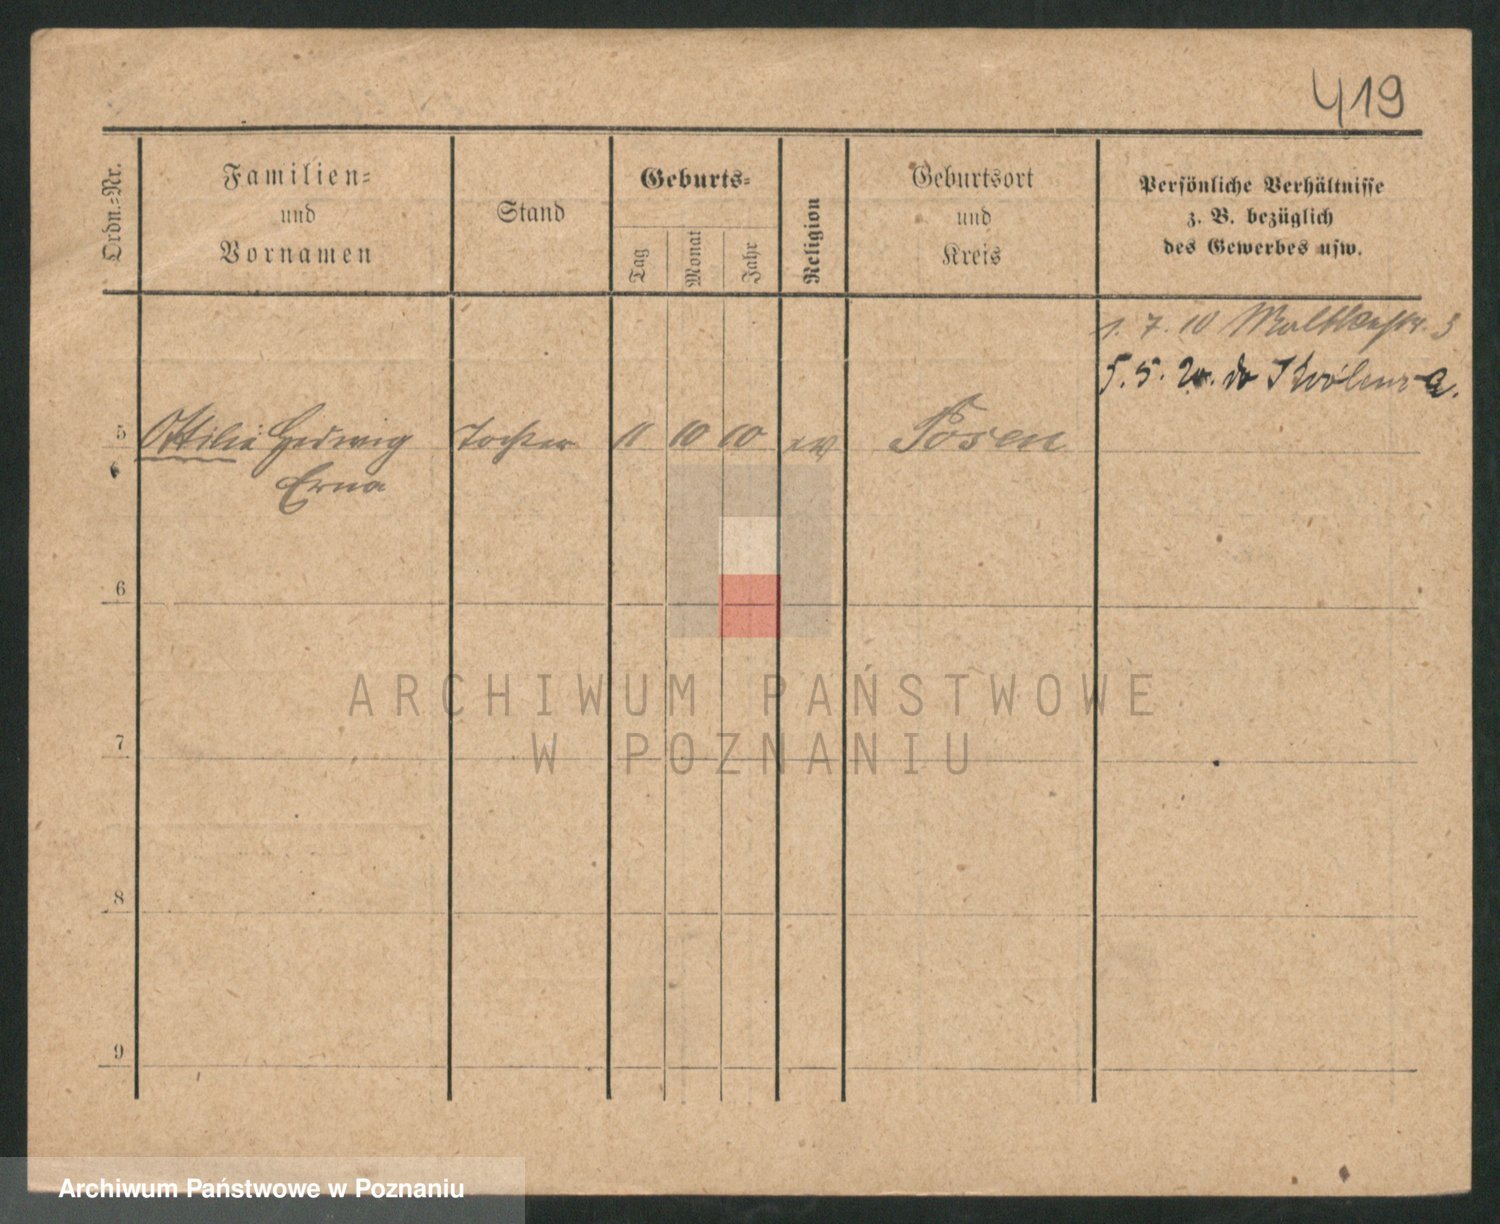 419
Ordn.-Nr.
Familien-
und
Vornamen
Stand
Geburts-
Tag
Monat
Jahr
Religion
Geburtsort
und
Kreis
Persönliche Verhältnisse
z. B. bezüglich
des Gewerbes usw.
1. 7. 10 Moltkestr. 3
5. 5. 20. do
5 Ottilie Hedwig Tochter 11 10 10 ev Posen
Erna
6
7
8
9
ARCHIWUM PAŃSTWOWE
W POZNANIU
Archiwum Państwowe w Poznaniu